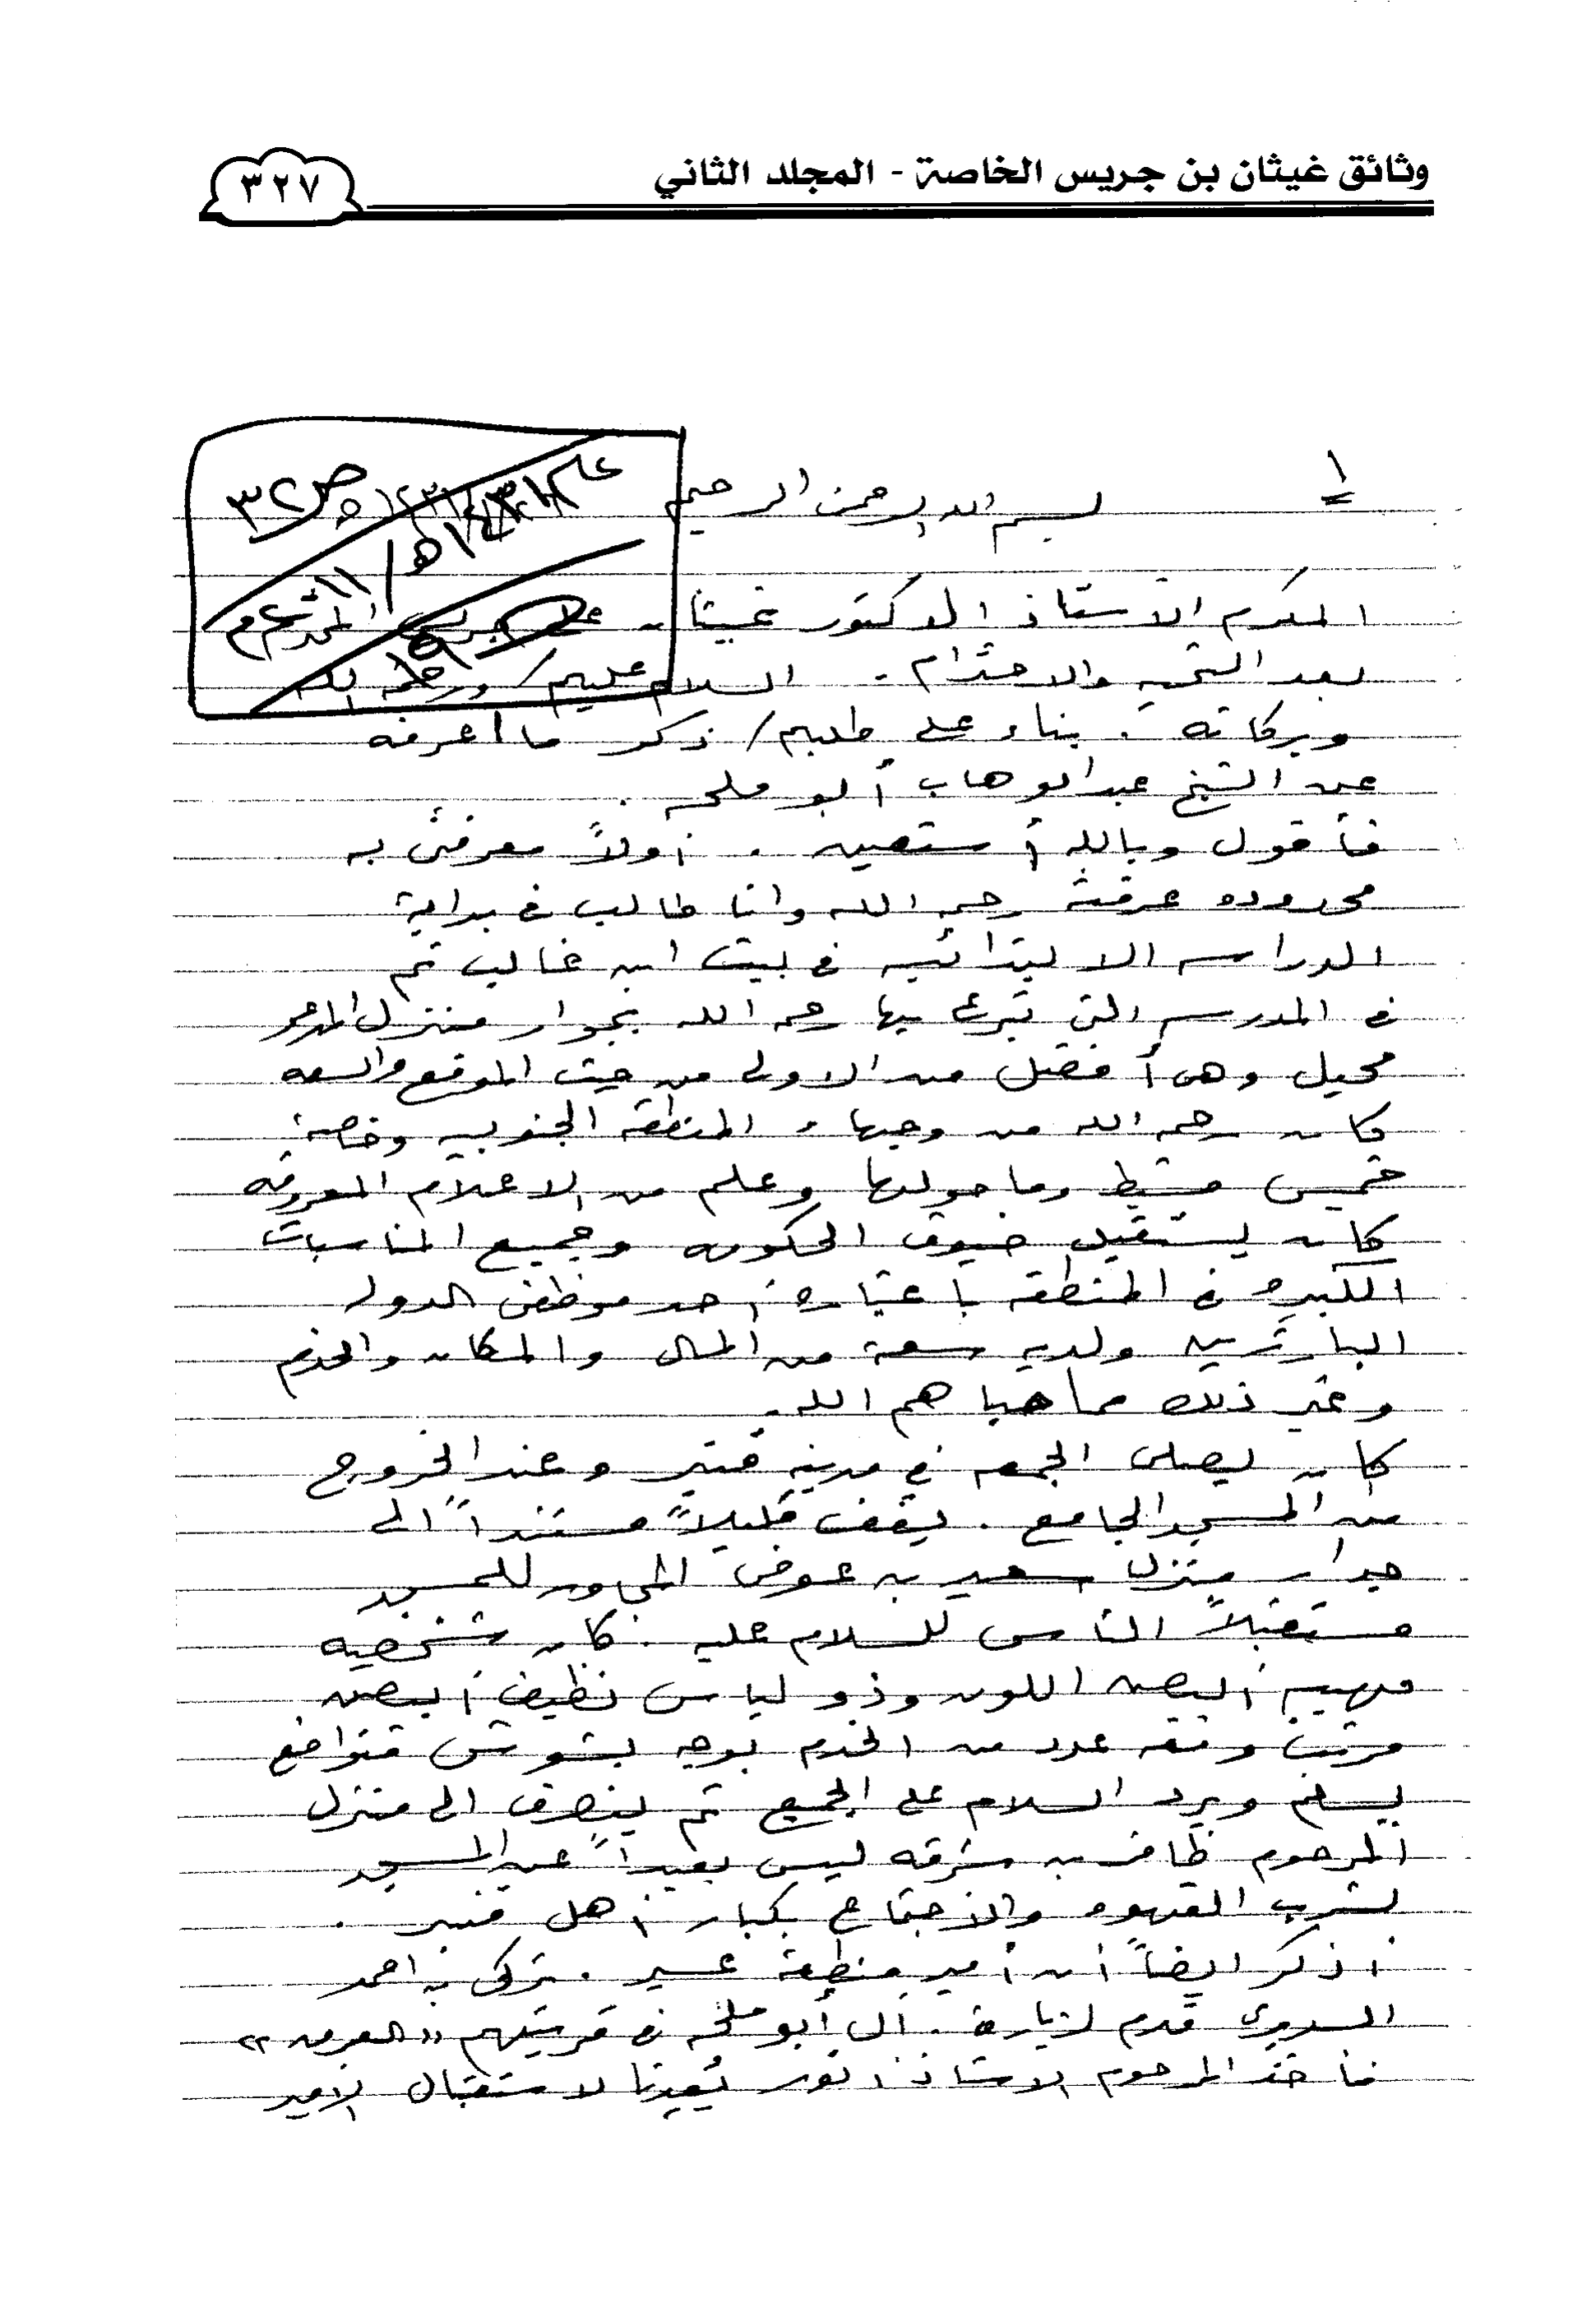 وثائق غيثان بن جريس الخاصة - المجلد الثاني
٣٢٧
١
بسم الله الرحمن الرحيم
المكرم الأستاذ الدكتور غيثان علي جريس المحترم
بعد التحيه والاحترام . السلام عليكم ورحمة الله
وبركاته . بناء على طلبكم / ذكر ما اعرفه
عن الشيخ عبدالوهاب أبو ملحه .
فأقول وبالله أستعين . أولاً معرفتي به
محدوده عرفته رحمه الله وانا طالب في بداية
الدراسه الابتدائيه في بيت ابن غالب ثم
في المدرسه التي تبرع بها رحمه الله بجوار منزل المرحوم
محيل وهي أفضل من الاولى من حيث الموقع والسعه
كان رحمه الله من وجهاء المنطقه الجنوبيه وخاصة
خميس مشيط وما حولها وعلم من الاعلام المعروفه
كان يستقبل ضيوف الحكومه وجميع المناسبات
الكبيره في المنطقه باعتباره أحد موظفي الدوله
البارزين ولديه سعة من المال والمكان والخدم
وغير ذلك مما حباهم الله .
كان يصلى الجمعه في مدينه وعند الخروج
من المسجد الجامع . يقف قليلاً مستنداً الى
جدار منزل سعيد بن عوض المجاور للمسجد
مستقبلاً الناس للسلام عليه . كان شخصيه
مهيبه أبيض اللون وذو لباس نظيف أبيض
مرتب ومعه عدد من الخدم بوجه بشوش متواضع
يسلم ويرد السلام على الجميع ثم ينصرف الى منزل
المرحوم ظافر بن مشرفه ليس بعيداً عن المسجد
لشرب القهوه والاجتماع بكبار أهل
أذكر ايضاً أن أمير منطقة عسير . تركي بن احمد
السديري قدم لزيارة . آل أبو ملحه في قريتهم «العرق»
فأخذ المرحوم الاستاذ أنور يعدنا لاستقبال الأمير